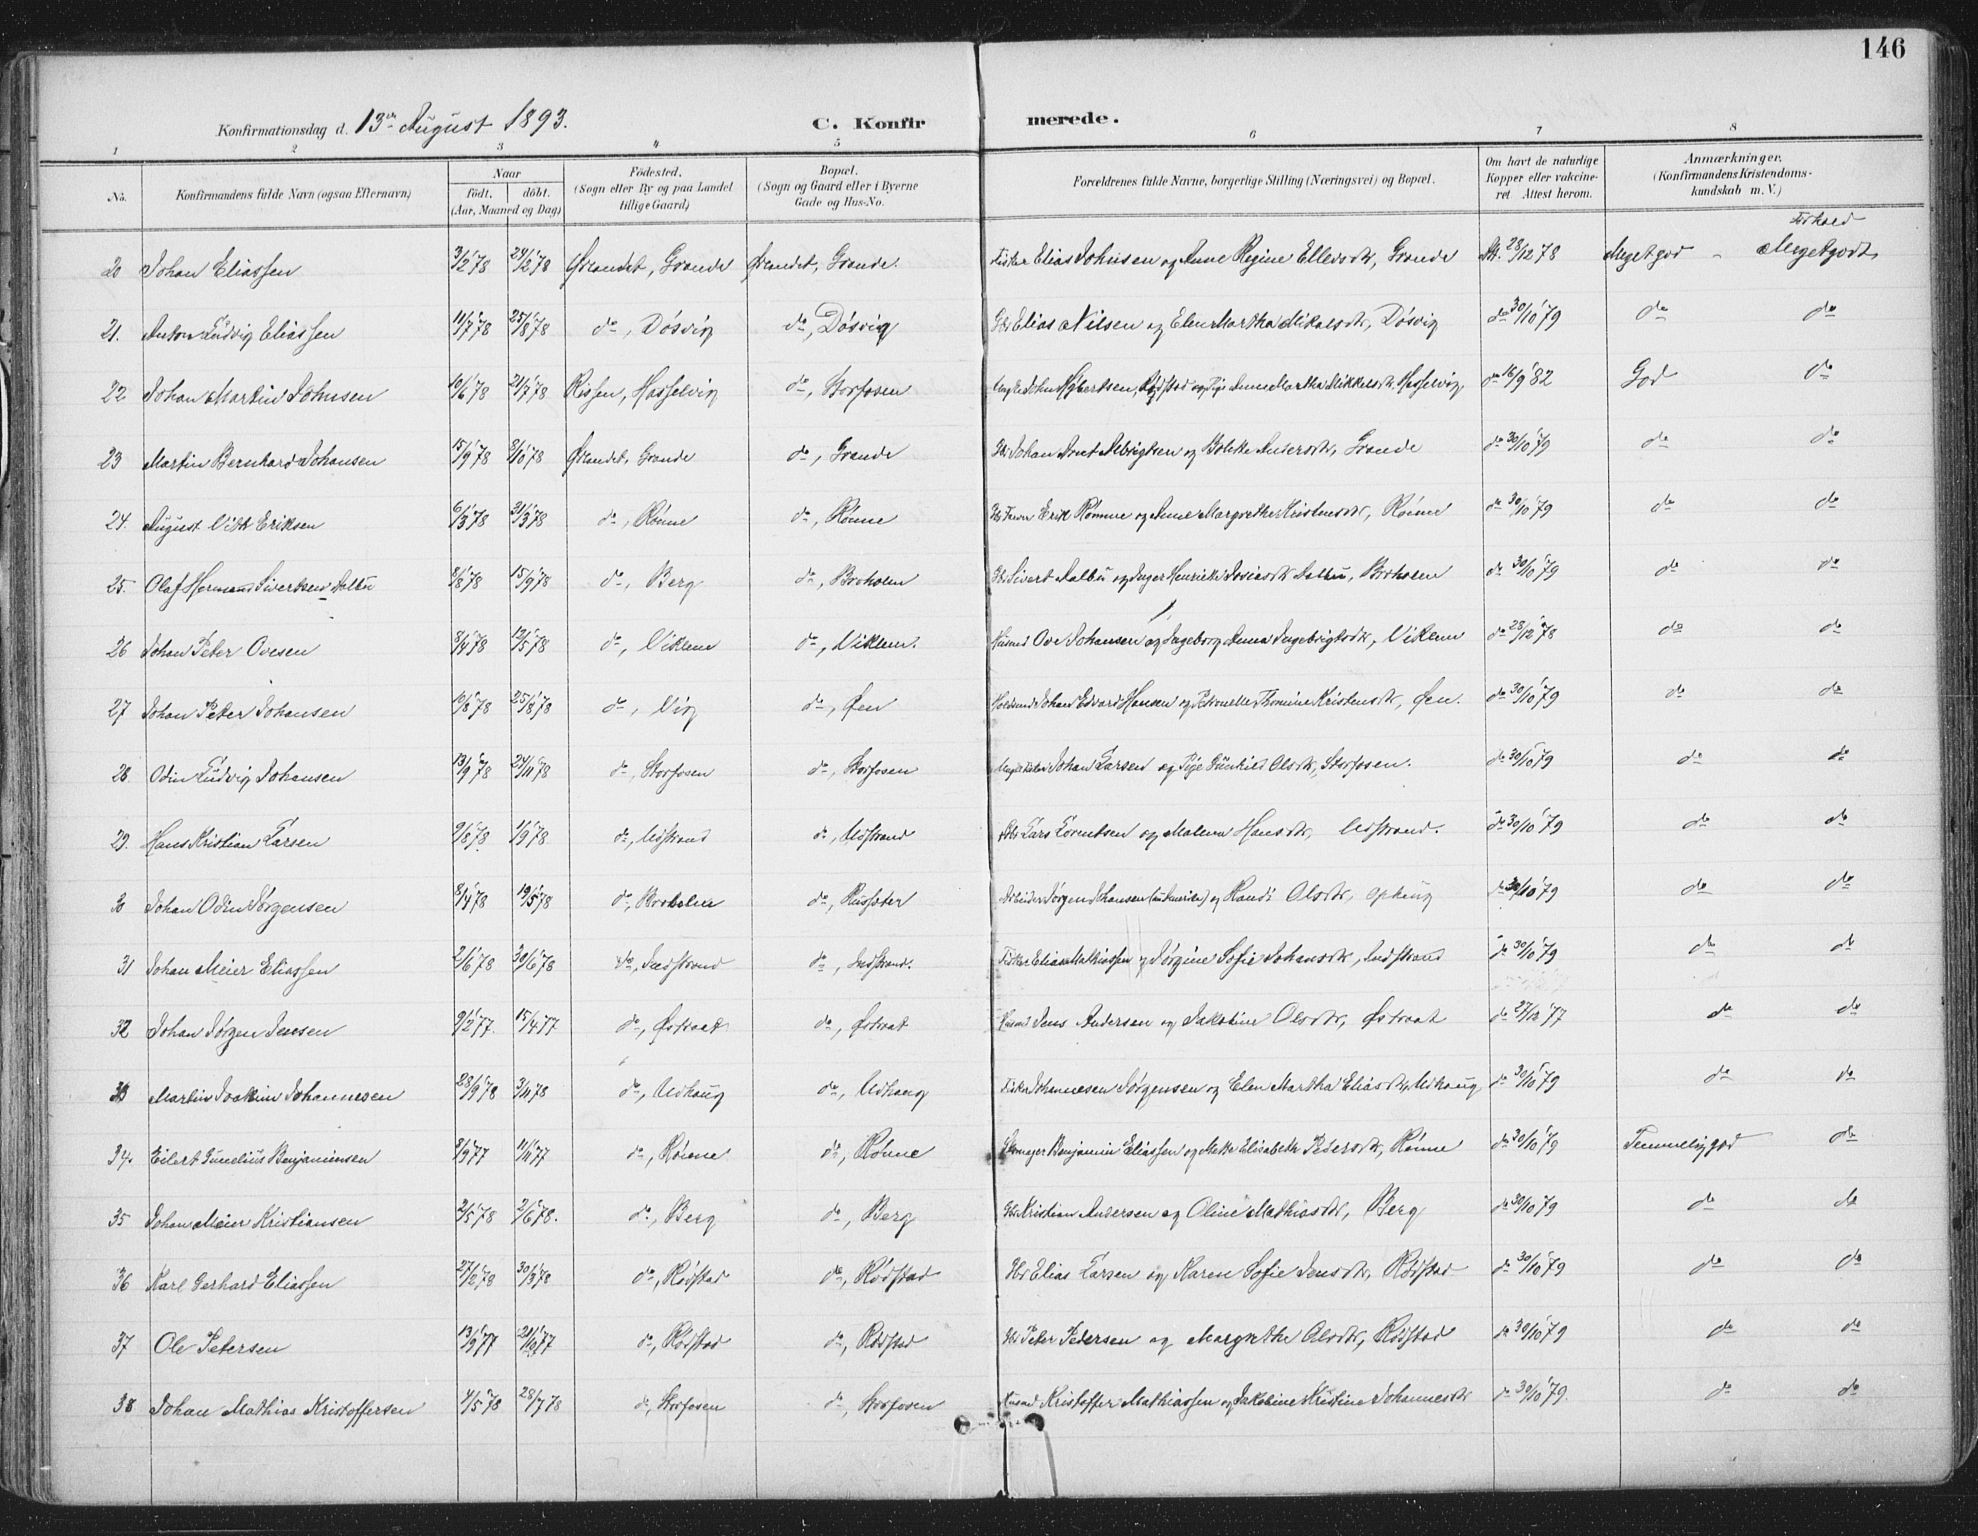 146
Konfirmationsdag d. 13de August 1893. C. Konfirmerede.
1 2 3 4 5 6 7 8
No. Konfirmandens fulde Navn (ogsaa Efternavn) Naar født. døbt. (Aar, Maaned og Dag) Fødested. (Sogn eller By og paa Landet tillige Gaard) Bopæl. (Sogn og Gaard eller i Byerne Gade og Hus-No. Forældrenes fulde Navne, borgerlige Stilling (Næringsvei) og Bopæl. Om havt de naturlige Kopper eller vaccineret. Attest herom. Anmærkninger. (Konfirmandens Kristendomskundskab m. V.)
Forhold
20 Johan Eliassen 3/2 78 24/2 78 Ørlandet, Grande Ørlandet, Grande. Fisker Elias Johnsen og Anne Regine Ellevsdtr, Grande Att. 28/12 78 Megetgod - Megetgodt
21. Anton Ludvig Eliassen 11/7 78 25/8 78 do, Døsvig do, Døsvig Gbr Elias Nilsen og Elen Martha Mikalsdtr, Døsvig do 30/10 79 do do
22 Johan Martin Johnsen 10/6 78 21/7 78 Rissen, Hasselvig do, Storfosen Ungkr John Rødstad og Pige Anne Martha Mikkelsdtr, Hasselvig, do 16/9 82 God do
23 Martin Bernhard Johansen 15/9 78 8/10 78 Ørlandet, Grande do, Grande Gbr Johan Arnt Albrigtsen og Bolette Andersdtr, Grande do 30/10 79 do do
24. August Vilh Eriksen 6/3 78 31/3 78 do, Rønne do, Rønne Erik Rømme og Anne Margrethe Kristensdtr, Rønne do 30/10 79 do do
25. Olaf Herman Sivertsen Aalbu 8/8 78 15/9 78 do, Berg do, Broholm Gbr Sivert Aalbu og Inger Henriette Aalbu, Broholm do 30/10 79 do do
26 Johan Peter Ovesen 8/4 78 12/5 78 do, Viklem do, Viklem. Husmd Ove Johansen og Ingeborg Anna Ingebrigtsdtr, Viklem do 28/12 78 do do
27 Johan Peter Johansen 10/8 78 25/8 78 do, Vig do, Øen Johan Edvard Hansen og Petronelle Thomine Kristensdtr, Øen. do 30/10 79 do do
28 Odin Ludvig Johansen 13/9 78 24/11 78 do, Storfosen do, Storfosen Ungkarl Johan Larsen og Pige Gunhild Olsdtr, Storfosen. do 30/10 79 do do
29. Hans Kristian Larsen 9/8 78. 1/9 78 do, Udstrand do, Udstrand Gbr Lars Lorentsen og Malena Hansdtr, Udstrand. do 30/10 79 do do
30 Johan Odin Jørgensen 8/4 78 19/5 78 do, Broholm do, Arbeider Jørgen Johansen (i Amerika) og Olsdtr, Ophaug do 30/10 79 do do
31 Johan Meier Eliassen 2/6 78 30/6 78 do, Indstrand do, Indstrand. Fisker Elias Mathiassen og Jørgine Sofie Johansdtr, Indstrand do 30/10 79 do do
32 Johan Jørgen Jensen 9/2 77. 15/4 77 do, Østraat do, Østraat Husmd Jens Andersen og Jakobine Olsdtr, Østraat do 27/12 77 do do
33 Martin Joakim Johannesen 28/9 78 3/11 78 do, Udhaug do, Udhaug Fisker Johannesen Jørgensen og Elen Martha Eliasdtr, Udhaug do 30/10 79 do do
34. Eilert Cunelius Benjaminsen 8/9 77 11/11 77 do, Rønne do, Rønne Benjamin Eliassen og Mette Elisabeth Pedersdtr, Rønne do 30/10 79 Temmeliggod do
35 Johan Meier Kristiansen 2/5 78 2/6 78. do, Berg do, Berg Gbr Kristian Andersen og Oline Mathiasdtr, Berg do 30/10 79 do do
36 Karl Gerhard Eliassen 27/2 78 30/3 78 do, Rødstad do, Rødstad Gbr Elias Larsen og Karen Sofie Jensdtr, Rødstad do 30/10 79 do do
37 Ole Petersen 13/9 77 21/10 77 do, Rødstad do, Rødstad Gbr Peter Pedersen og Margrethe Olsdtr, Rødstad do 30/10 79 do do
38 Johan Mathias Kristoffersen 4/5 78 28/7 78 do, Storfosen do, Storfosen Husmd Kristoffer Mathiassen og Jakobine Kristine Johannesdtr do 30/10 79. do do